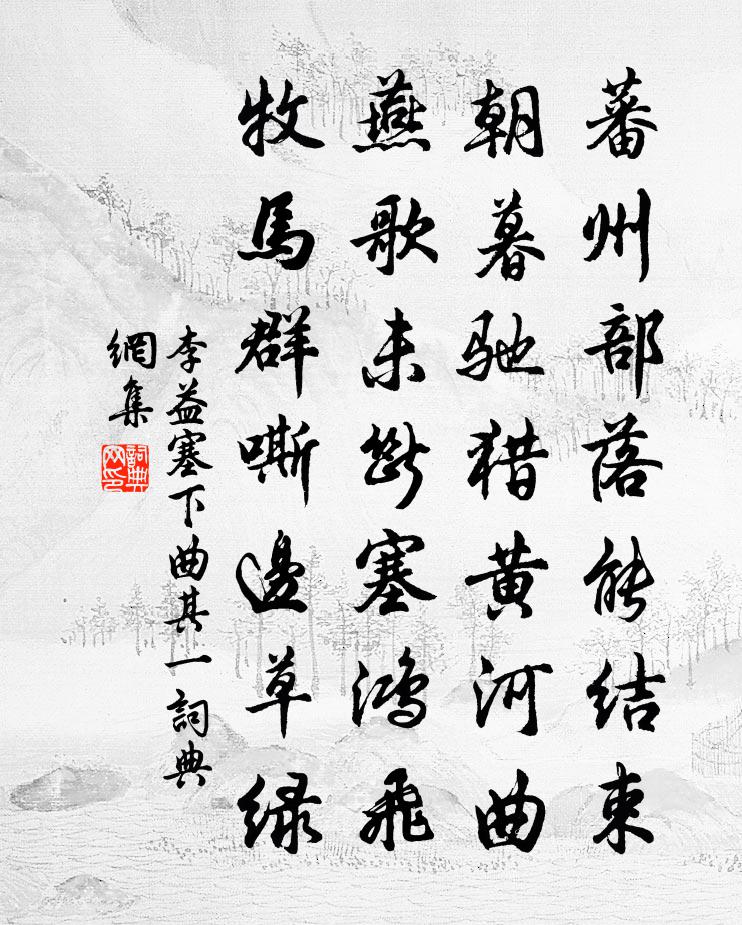 蕃州部落能结束
朝暮驰猎黄河曲
燕歌未断塞鸿飞
牧馬群嘶邊草绿
李益塞下曲其一詞典
網集
詞典
网印